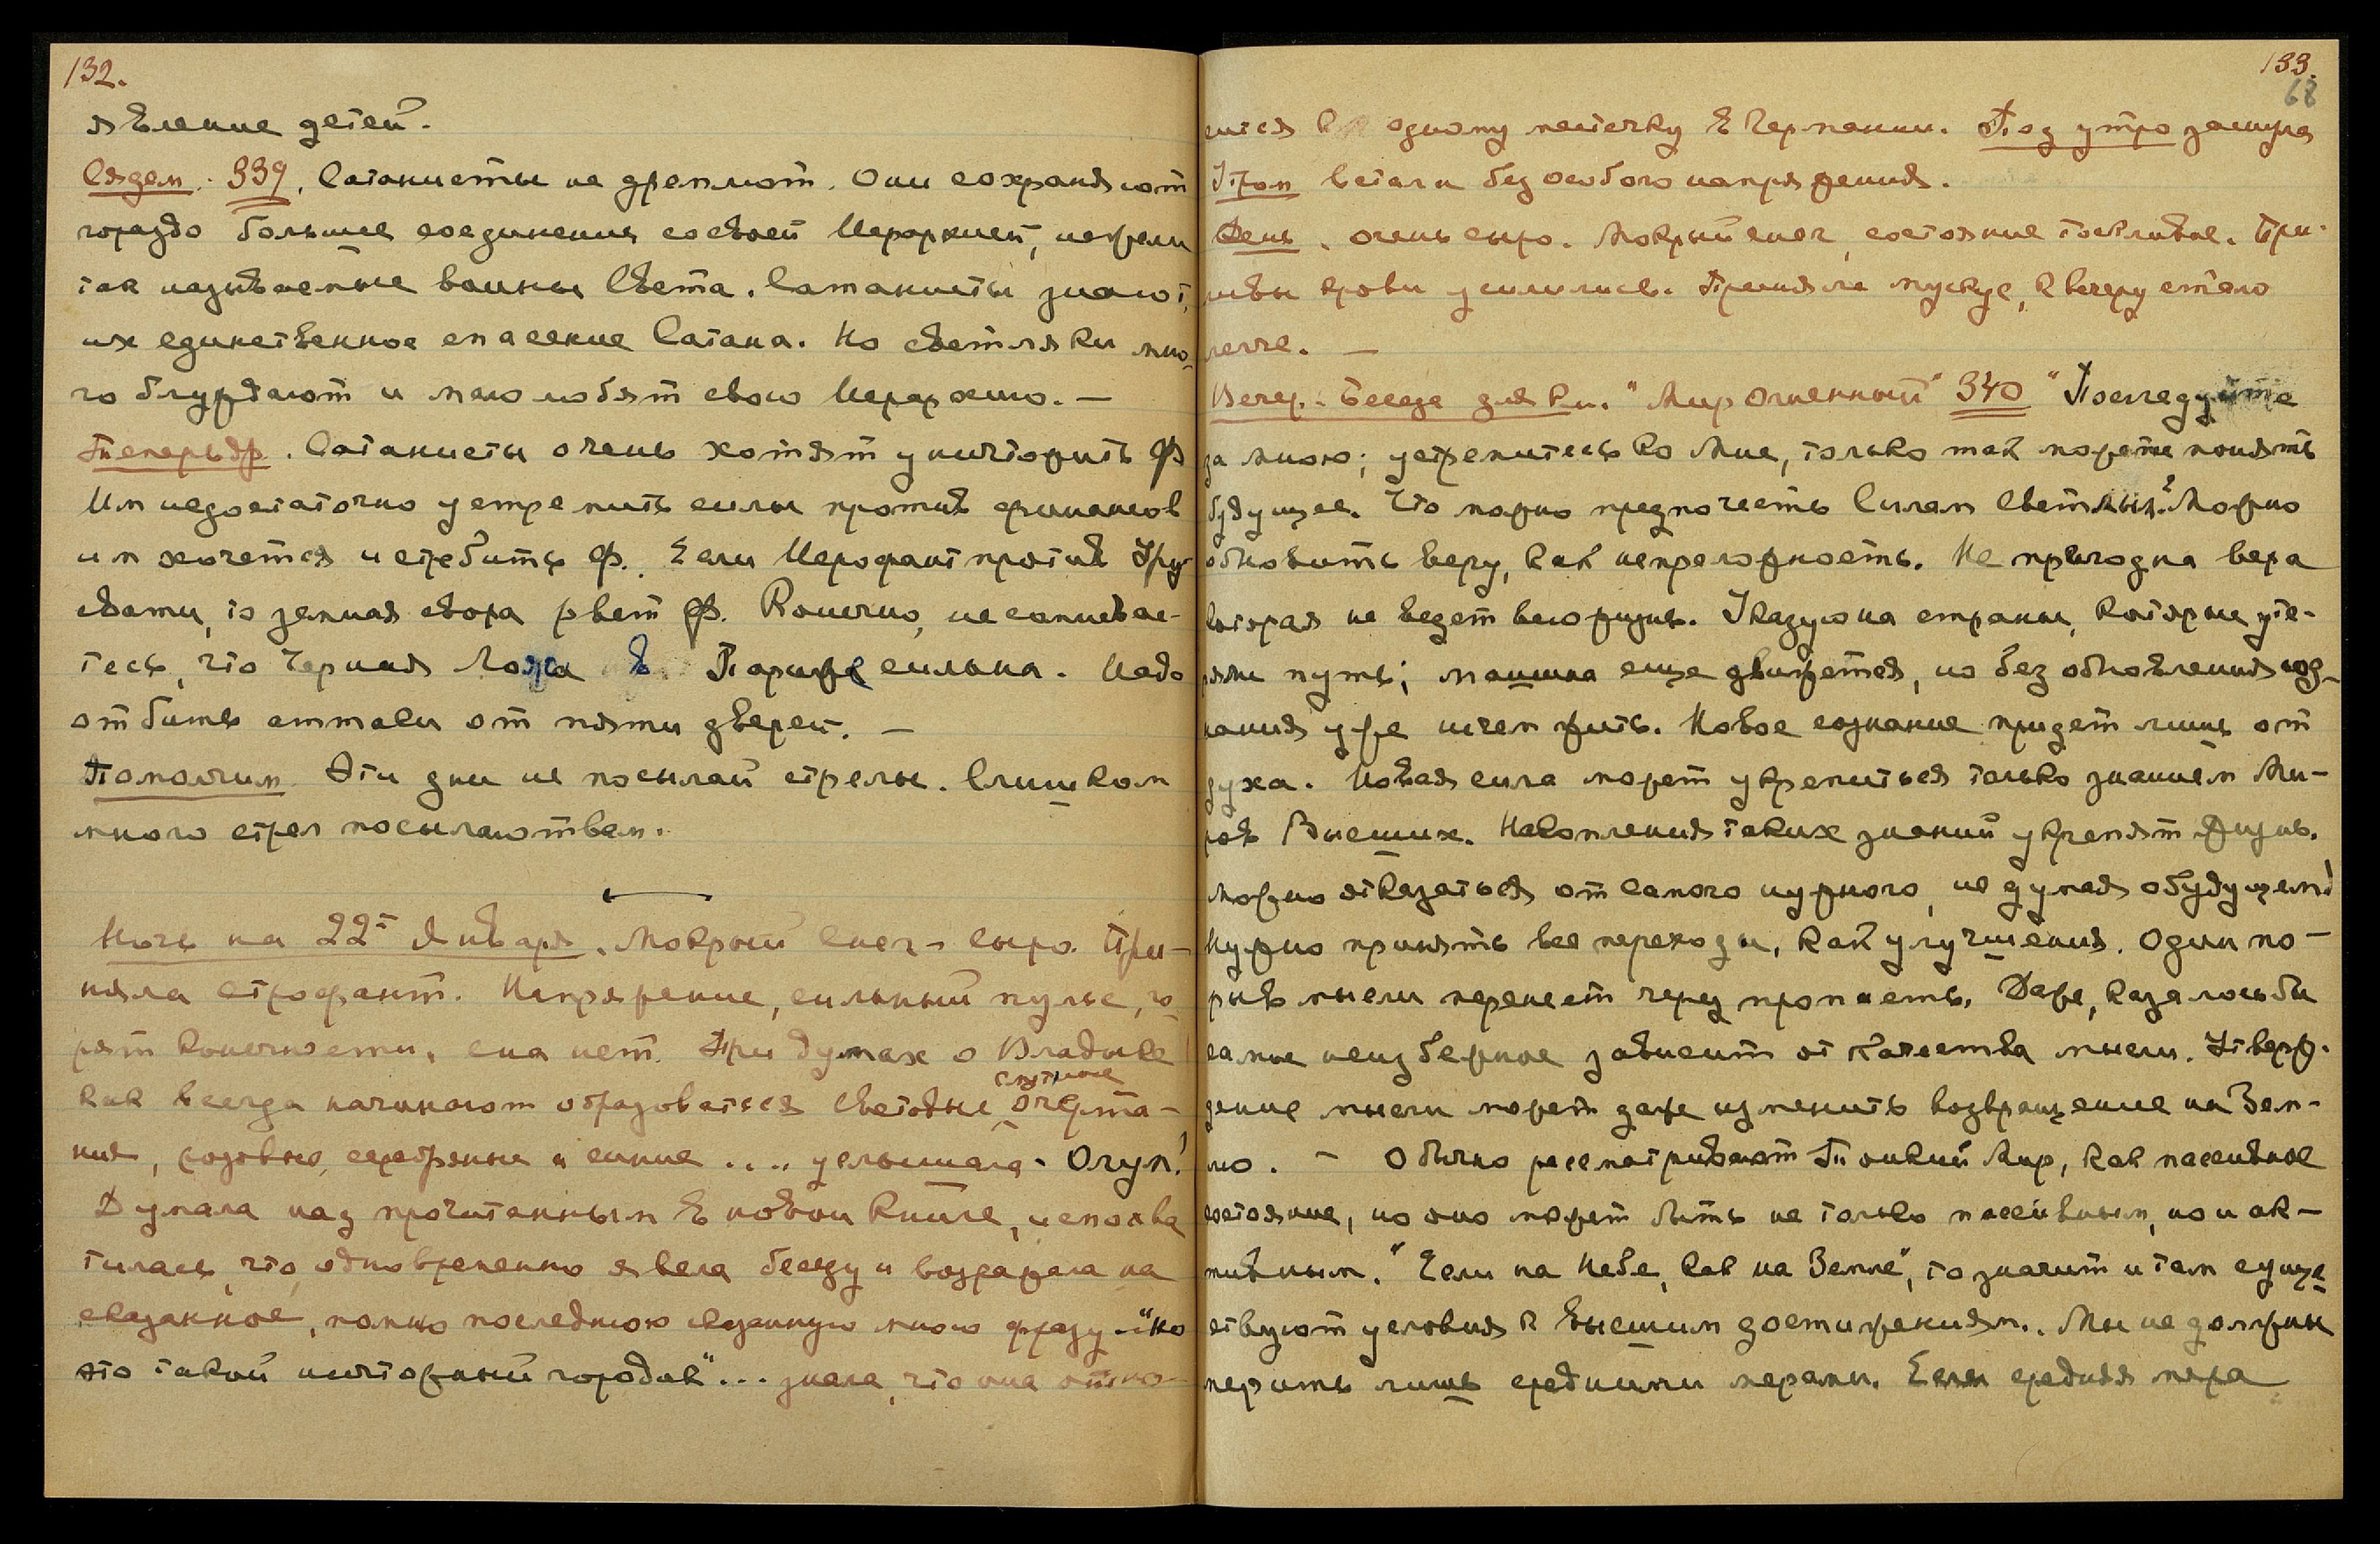 132.
явление детей.
Сядем. 339. Сатанисты не дремлют. Они сохраняют
гораздо большее соединение со своей Иерархией, нежели
так называемые воины Света. Сатанисты знают,
их единственное спасение Сатана. Но светляки мно
го блуждают и мало любят свою Иерархию. —
Теперь др. Сатанисты очень хотят уничтожить Ф
Им недостаточно устремить силы против финансов
им хочется истребить Ф. Если Иерофант против Уру
свати, то земная свора рвет Ф. Конечно, не сомневае-
тесь, что Черная Ложа в Париже сильна. Надо
отбить от пяти дверей. —
Помолчим. Эти дни не посылай стрелы. Слишком
много стрел посылают вам.
Ночь на 22-е Января. Мокрый снег - сыро. При-
няла строфант. Напряжение, сильный пульс, го
рят конечности, сна нет. При думах о Владыке
как всегда начинают образоваться световые смутные очерта-
ния, розовые, серебряные и синие .... услышала - Олун!
Думала над прочитанным в новой книге, и спохва
тилась, что одновременно я вела беседу и возражала на
сказанное, помню последнюю сказанную мною фразу - "Но
это такой ничтожный городок"... знала, что она отно-
133.
68
сится к одному местечку в Германии. Под утро заснула
Утром встала без особого напряжения.
День. очень сыро. Мокрый снег, состояние тоскливое. При-
ливы крови усилились. Приняла мускус, к вечеру стало
легче. —
Вечер. Беседа для Кн. "Мир Огненный" 340 "Последуйте
за мною; устремитесь ко Мне, только так можете понять
будущее. Что можно предпочесть Силам Светлым? Можно
обновить веру, как непреложность. Не пригодна вера
которая не ведет всю жизнь. Указую на страны, которые уте-
ряли путь; машина еще движется, но без обновления соз-
нания уже нечем жить. Новое сознание придет лишь от
духа. Новая сила может укрепиться только знанием Ми-
ров Высших. Накопления таких знаний укрепят жизнь.
Можно отказаться от самого нужного, не думая о будущем!
Нужно принять все переходы, как улучшения. Один по-
рыв мысли перенесет через пропасть. Даже, казалось бы
самые неизбежное зависит от качества мысли. Утверж-
дение мысли может даже изменить возвращение на Зем-
лю. — Обычно рассматривают Тонкий Мир, как пассивное
состояние, но оно может быть не только пассивным, но и ак-
тивным. "Если на Небе, как на Земле", то значит и там суще
ствуют условия к высшим достижениям. Мы не должны
мерить лишь средними мерами. Если средняя мера